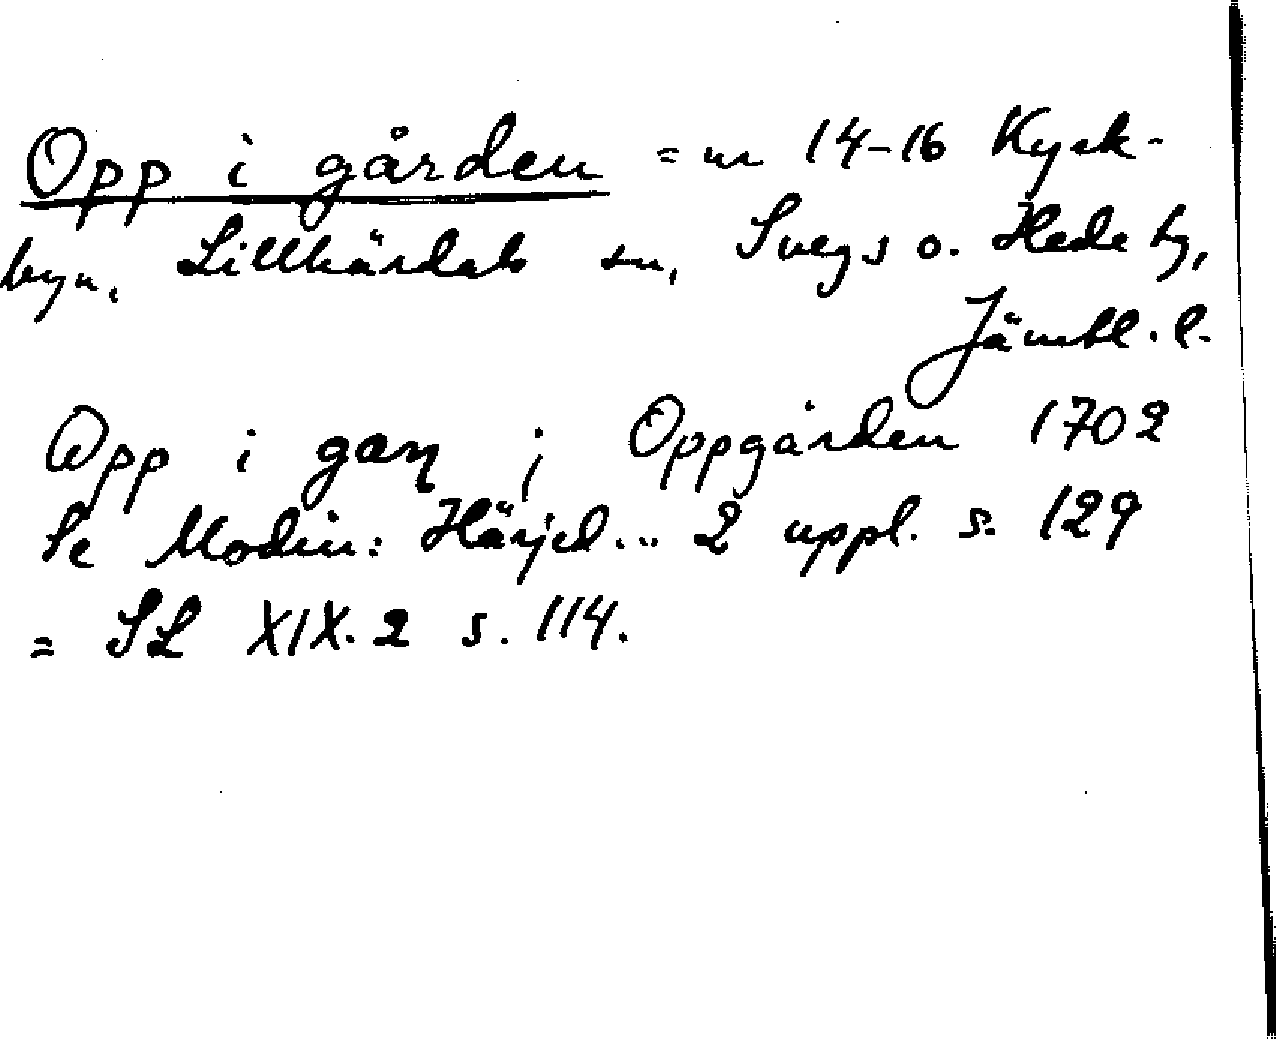 Opp i gården = nr 14-16 Kyrk-
byn, Lillhärdals sn, Svegs o. Hede tg,
Jämtl. l.
Opp i gaɳ ; Oppgården 1702
Se Modin: Härjed... 2 uppl. s. 129
= SL XIX.2 s. 114.